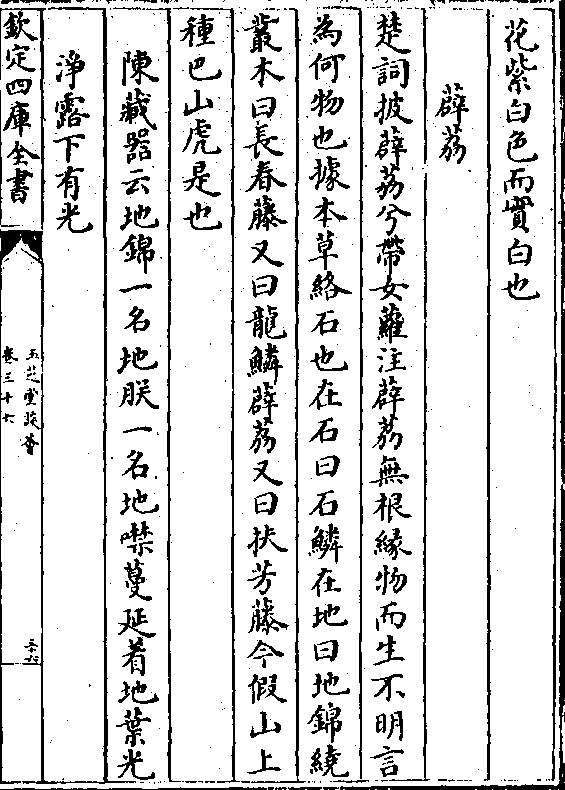 花紫白色而實白也
薜荔
楚詞披薜荔兮帶女蘿注薜荔無根緣物而生不明言
為何物也據本草絡石也在石曰石鱗在地曰地錦繞
叢木曰長春藤又曰龍鱗薜荔又曰扶芳藤今假山上
種巴山虎是也
陳藏器云地錦一名地朕一名地噤蔓延着地葉光
淨露下有光
欽定四庫全書
玉芝堂談薈
卷三十六
三十六